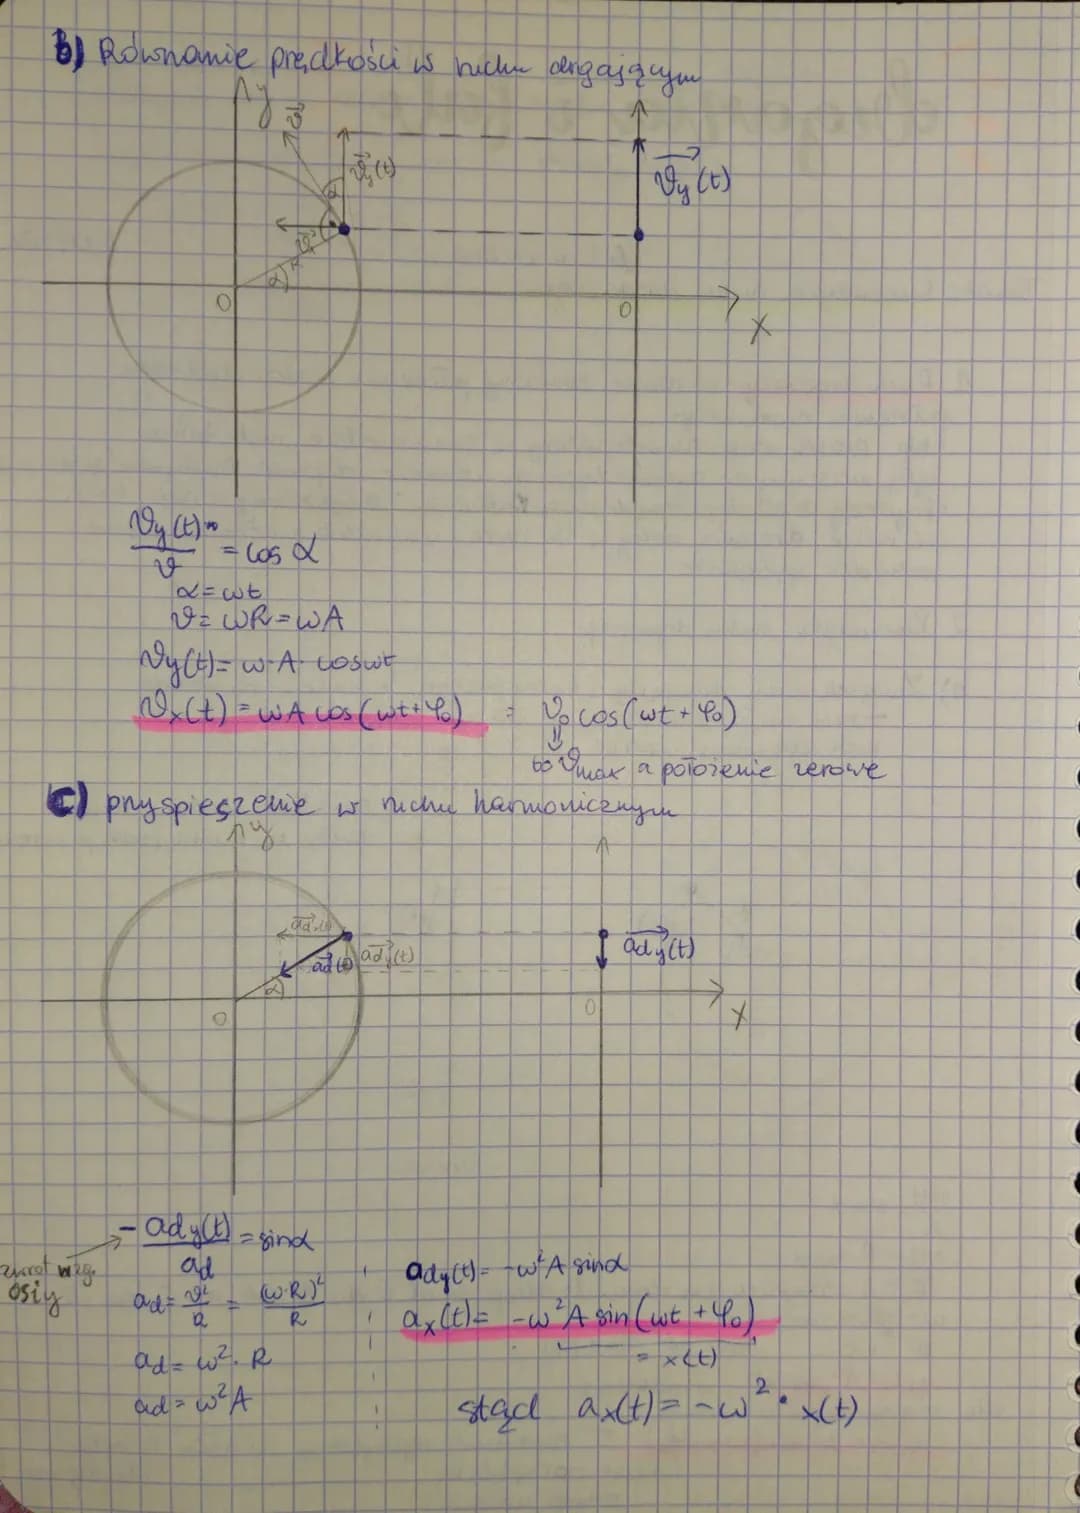 b) Równanie prędkości w ruchu drgającym
y
v⃗
v⃗y(t)
v⃗y(t)
α
α
0
0
x
vy(t)/v = cos α
α = ωt
v = ωR = ωA
vy(t) = ω·A· cosωt
vx(t) = ωA cos(ωt+φ₀) = v₀ cos(ωt+φ₀)
⇓
bo vmax a położenie zerowe
c) przyspieszenie w ruchu harmonicznym
y
ad(t)
ady(t)
ady(t)
α
0
0
x
- ady(t)/ad = sinα
zwrot wzg.
osi y
ad = v²/R = (ω·R)²/R
ad = ω²·R
ad = ω²A
ady(t) = -ω²A sinα
ax(t) = -ω²A sin(ωt+φ₀)
= x(t)
stąd ax(t) = -ω² · x(t)